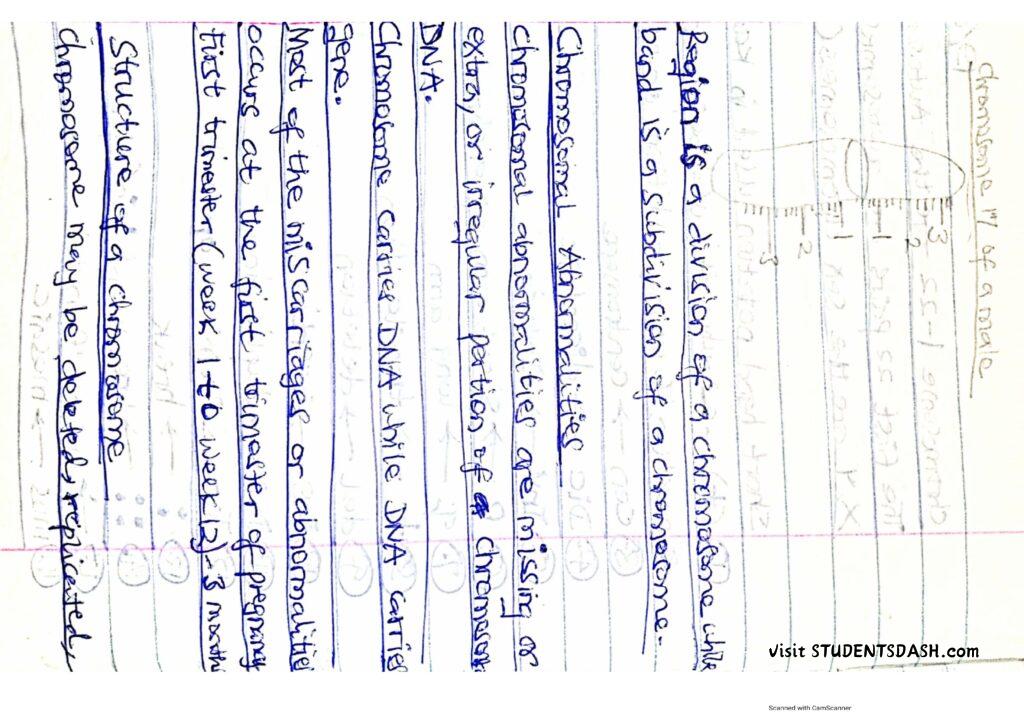 Chromosome 17 of a male
3
2
1
1
2
3
Region is a division of a chromosome while
band is a subdivision of a chromosome.
Chromosomal Abnormalities
Chromosomal abnormalities are missing or
extra, or irregular portion of chromosom
DNA.
Chromosome carries DNA while DNA carries
gene.
Most of the miscarriages or abnormalities
occurs at the first trimester of pregnancy
first trimester (week 1 to week 12) - 3 months
Structure of a chromosome
Chromosome may be deleted, replicated,
Visit STUDENTSDASH.com
Scanned with CamScanner